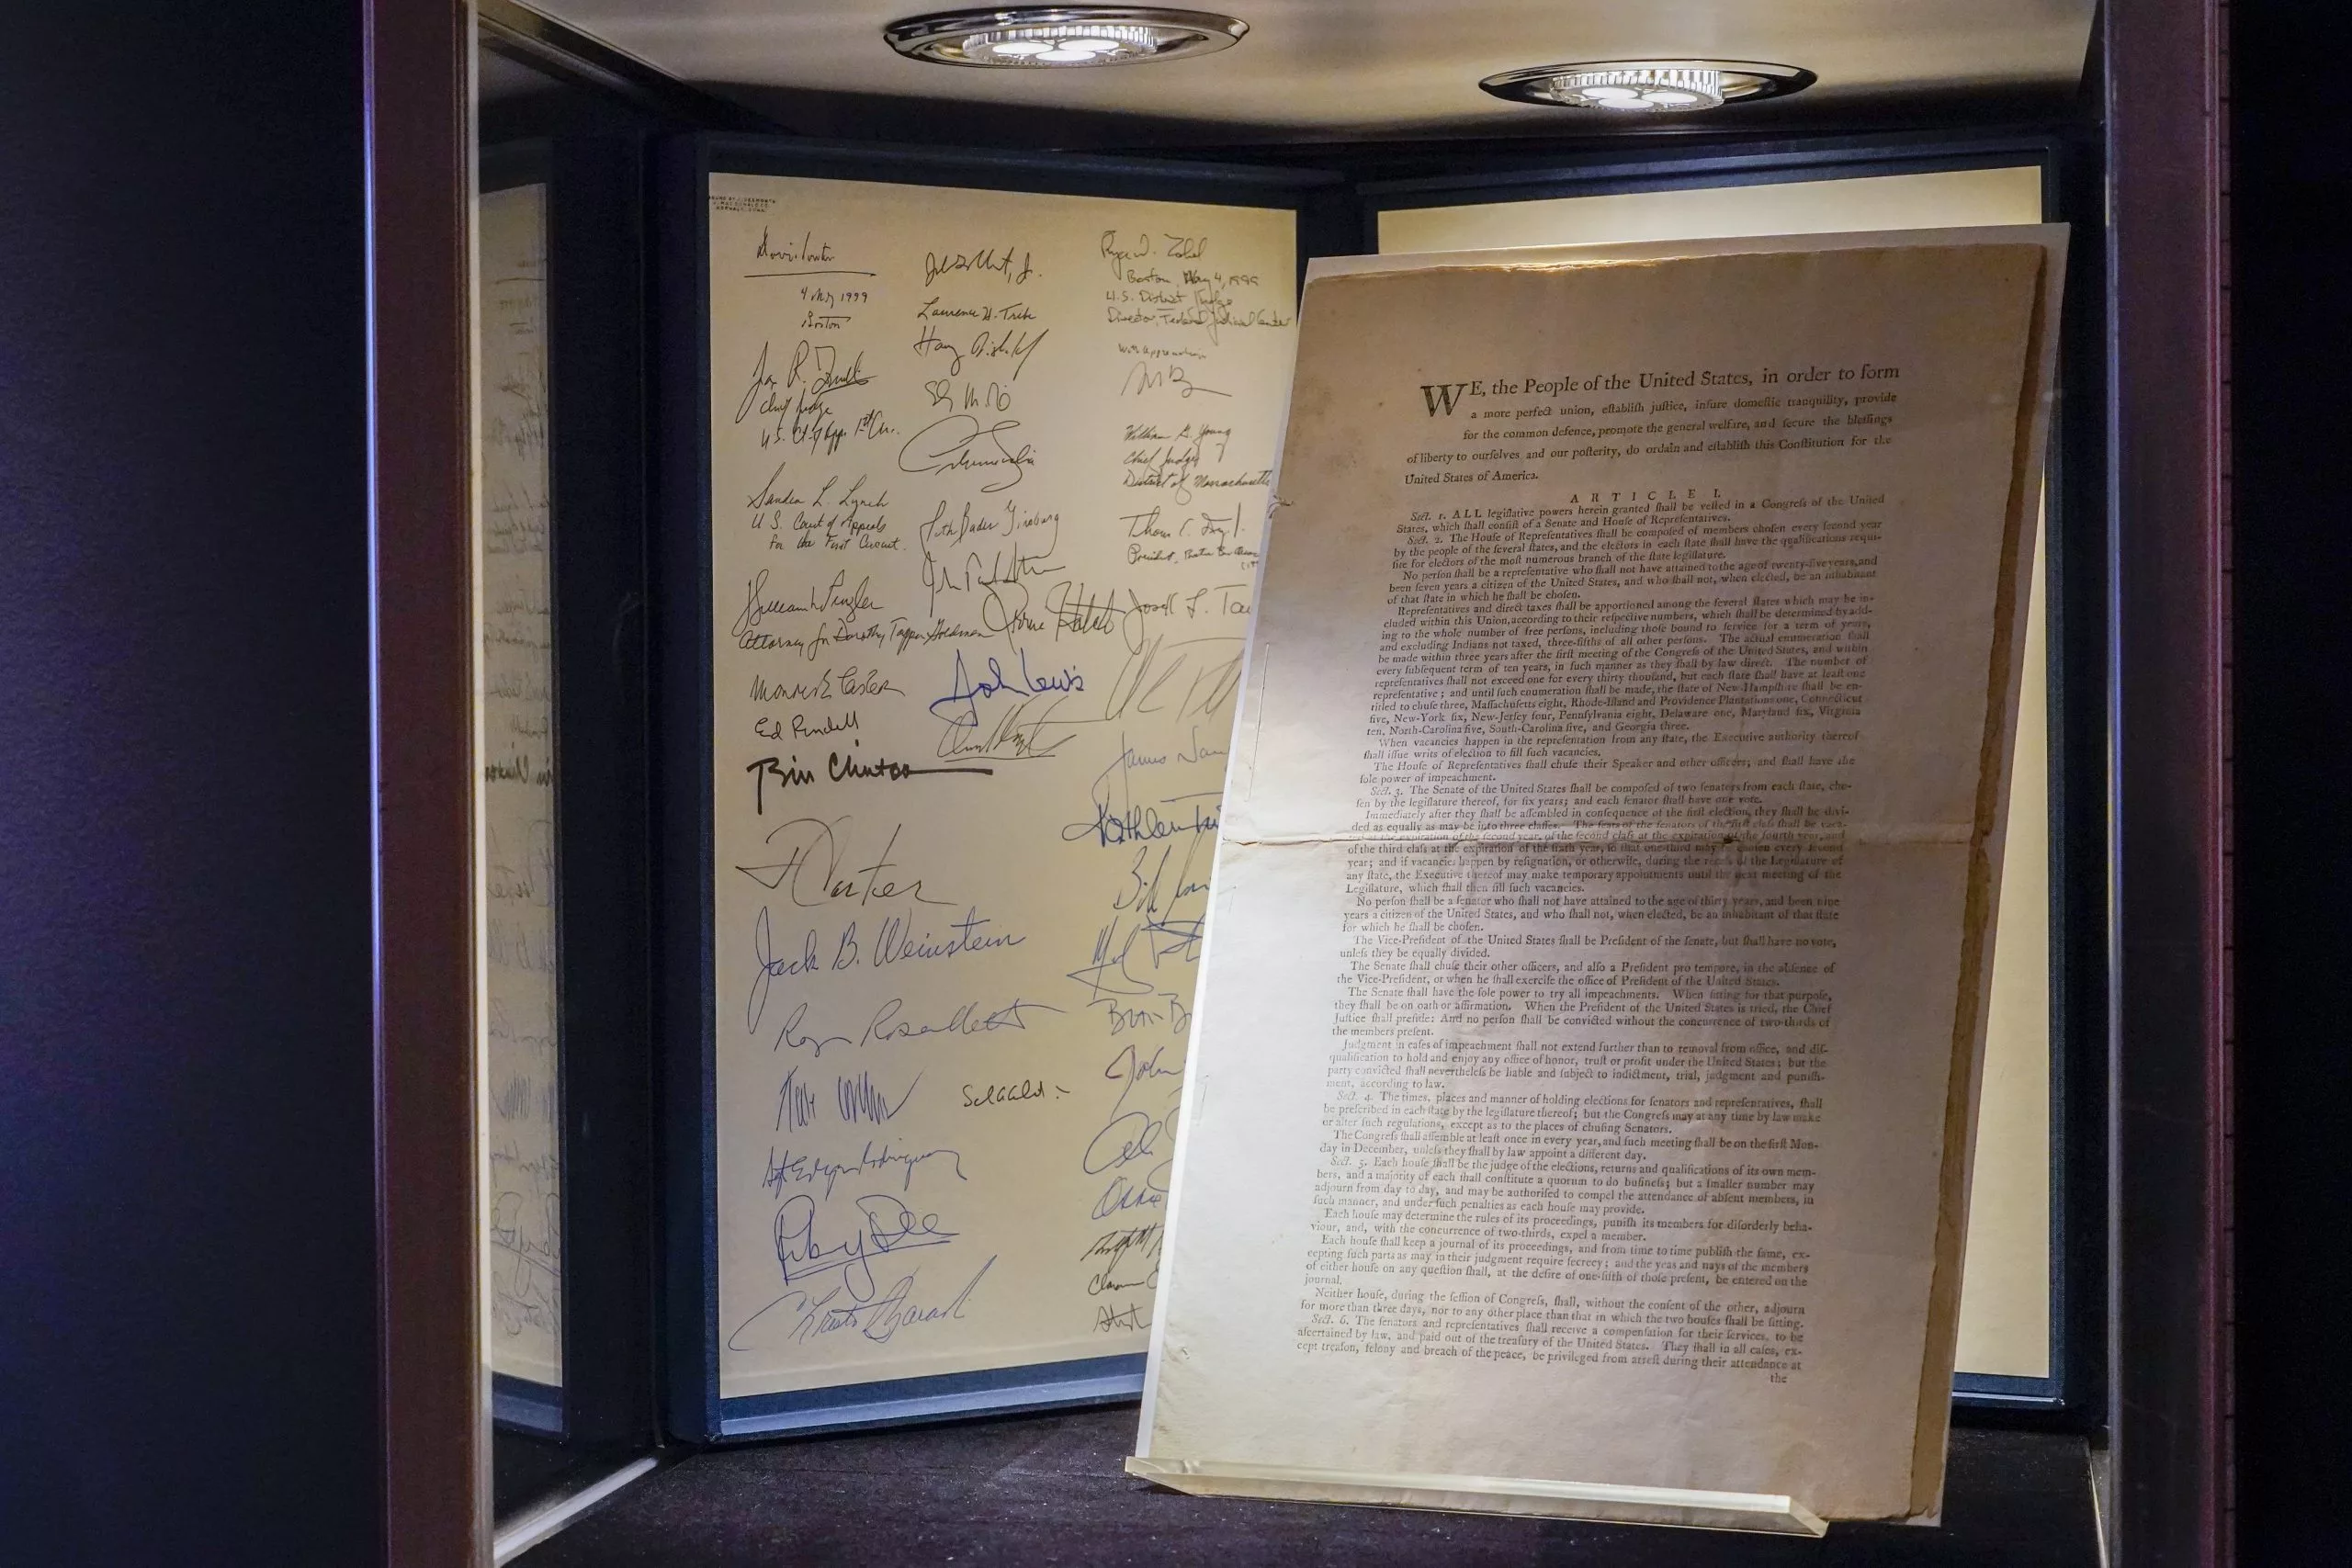 4 May 1999
Boston
Chief Judge
Sandra L. Lynch
U.S. Court of Appeals
for the First Circuit.
Attorney for Dorothy Tapper Goldman
Ed Rendell
Bill Clinton
Jack B. Weinstein
Ruby Dee
Laurence H. Tribe
Ruth Bader Ginsburg
John Paul Stevens
John Lewis
Boston, May 4, 1999
U.S. District Judge
Director, Federal Judicial Center
with appreciation
William G. Young
Chief Judge
District of Massachusetts
President, Boston Bar
James
Kathleen
Bill
John
WE, the People of the United States, in order to form
a more perfect union, eſtabliſh juſtice, inſure domeſtic tranquility, provide
for the common defence, promote the general welfare, and ſecure the bleſſings
of liberty to ourſelves and our poſterity, do ordain and eſtabliſh this Conſtitution for the
United States of America.
ARTICLE I.
Sect. 1. ALL legiſlative powers herein granted ſhall be veſted in a Congreſs of the United
States, which ſhall conſiſt of a Senate and Houſe of Repreſentatives.
Sect. 2. The Houſe of Repreſentatives ſhall be compoſed of members choſen every ſecond year
by the people of the ſeveral ſtates, and the electors in each ſtate ſhall have the qualifications requi-
ſite for electors of the moſt numerous branch of the ſtate legiſlature.
No perſon ſhall be a repreſentative who ſhall not have attained to the age of twenty-five years, and
been ſeven years a citizen of the United States, and who ſhall not, when elected, be an inhabitant
of that ſtate in which he ſhall be choſen.
Repreſentatives and direct taxes ſhall be apportioned among the ſeveral ſtates which may be in-
cluded within this Union, according to their reſpective numbers, which ſhall be determined by add-
ing to the whole number of free perſons, including thoſe bound to ſervice for a term of years,
and excluding Indians not taxed, three-fifths of all other perſons. The actual enumeration ſhall
be made within three years after the firſt meeting of the Congreſs of the United States, and within
every ſubſequent term of ten years, in ſuch manner as they ſhall by law direct. The number of
repreſentatives ſhall not exceed one for every thirty thouſand, but each ſtate ſhall have at leaſt one
repreſentative; and until ſuch enumeration ſhall be made, the ſtate of New-Hampſhire ſhall be en-
titled to chuſe three, Maſſachuſetts eight, Rhode-Iſland and Providence Plantations one, Connecticut
five, New-York ſix, New-Jerſey four, Pennſylvania eight, Delaware one, Maryland ſix, Virginia
ten, North-Carolina five, South-Carolina five, and Georgia three.
When vacancies happen in the repreſentation from any ſtate, the Executive authority thereof
ſhall iſſue writs of election to fill ſuch vacancies.
The Houſe of Repreſentatives ſhall chuſe their Speaker and other officers; and ſhall have the
ſole power of impeachment.
Sect. 3. The Senate of the United States ſhall be compoſed of two ſenators from each ſtate, cho-
ſen by the legiſlature thereof, for ſix years; and each ſenator ſhall have one vote.
Immediately after they ſhall be aſſembled in conſequence of the firſt election, they ſhall be divi-
ded as equally as may be into three claſſes. The ſeats of the ſenators of the firſt claſs ſhall be vaca-
ted at the expiration of the ſecond year, of the ſecond claſs at the expiration of the fourth year, and
of the third claſs at the expiration of the ſixth year, ſo that one-third may be choſen every ſecond
year; and if vacancies happen by reſignation, or otherwiſe, during the receſs of the Legiſlature of
any ſtate, the Executive thereof may make temporary appointments until the next meeting of the
Legiſlature, which ſhall then fill ſuch vacancies.
No perſon ſhall be a ſenator who ſhall not have attained to the age of thirty years, and been nine
years a citizen of the United States, and who ſhall not, when elected, be an inhabitant of that ſtate
for which he ſhall be choſen.
The Vice-Preſident of the United States ſhall be Preſident of the ſenate, but ſhall have no vote,
unleſs they be equally divided.
The Senate ſhall chuſe their other officers, and alſo a Preſident pro tempore, in the abſence of
the Vice-Preſident, or when he ſhall exerciſe the office of Preſident of the United States.
The Senate ſhall have the ſole power to try all impeachments. When ſitting for that purpoſe,
they ſhall be on oath or affirmation. When the Preſident of the United States is tried, the Chief
Juſtice ſhall preſide: And no perſon ſhall be convicted without the concurrence of two-thirds of
the members preſent.
Judgment in caſes of impeachment ſhall not extend further than to removal from office, and diſ-
qualification to hold and enjoy any office of honor, truſt or profit under the United States; but the
party convicted ſhall nevertheleſs be liable and ſubject to indictment, trial, judgment and puniſh-
ment, according to law.
Sect. 4. The times, places and manner of holding elections for ſenators and repreſentatives, ſhall
be preſcribed in each ſtate by the legiſlature thereof; but the Congreſs may at any time by law make
or alter ſuch regulations, except as to the places of chuſing Senators.
The Congreſs ſhall aſſemble at leaſt once in every year, and ſuch meeting ſhall be on the firſt Mon-
day in December, unleſs they ſhall by law appoint a different day.
Sect. 5. Each houſe ſhall be the judge of the elections, returns and qualifications of its own mem-
bers, and a majority of each ſhall conſtitute a quorum to do buſineſs; but a ſmaller number may
adjourn from day to day, and may be authoriſed to compel the attendance of abſent members, in
ſuch manner, and under ſuch penalties as each houſe may provide.
Each houſe may determine the rules of its proceedings, puniſh its members for diſorderly beha-
viour, and, with the concurrence of two-thirds, expel a member.
Each houſe ſhall keep a journal of its proceedings, and from time to time publiſh the ſame, ex-
cepting ſuch parts as may in their judgment require ſecrecy; and the yeas and nays of the members
of either houſe on any queſtion ſhall, at the deſire of one-fifth of thoſe preſent, be entered on the
journal.
Neither houſe, during the ſeſſion of Congreſs, ſhall, without the conſent of the other, adjourn
for more than three days, nor to any other place than that in which the two houſes ſhall be ſitting.
Sect. 6. The ſenators and repreſentatives ſhall receive a compenſation for their ſervices, to be
aſcertained by law, and paid out of the treaſury of the United States. They ſhall in all caſes, ex-
cept treaſon, felony and breach of the peace, be privileged from arreſt during their attendance at
the